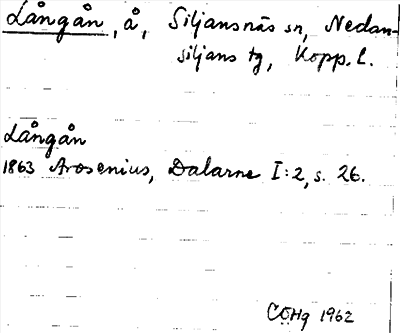 Långån, å, Siljansnäs sn, Nedan-
siljans tg, Kopp. l.
Långån
1863 Arosenius, Dalarne I:2, s. 26.
CÖHg 1962